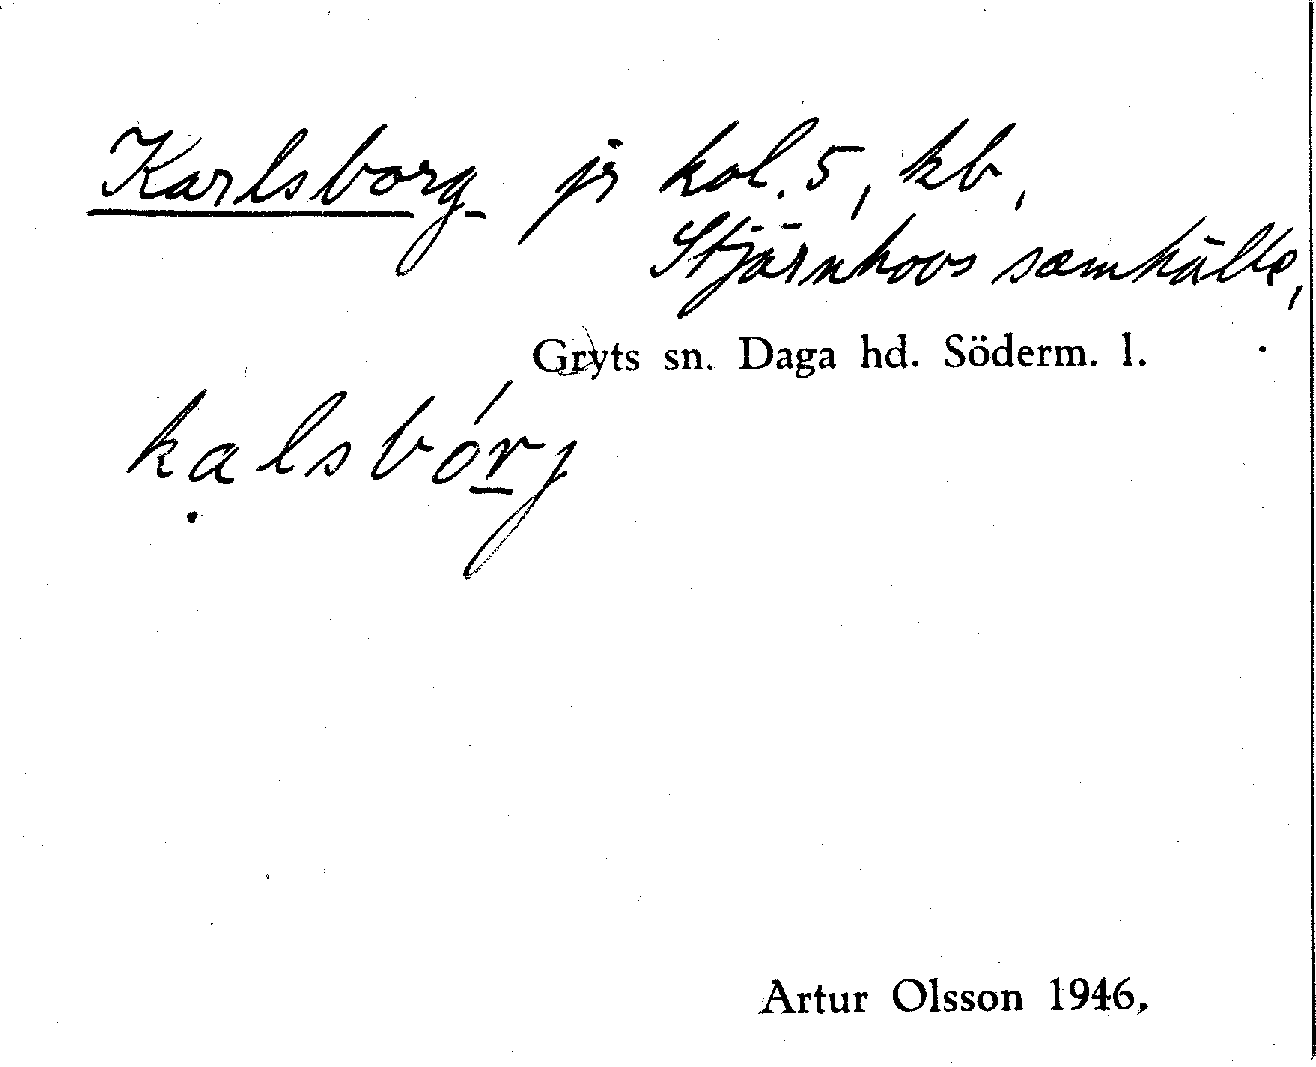 Karlsborg jr kol. 5, kb,
Stjärnhovs samhälle,
Gryts sn. Daga hd. Söderm. l.
kạlsbór̲j
Artur Olsson 1946.